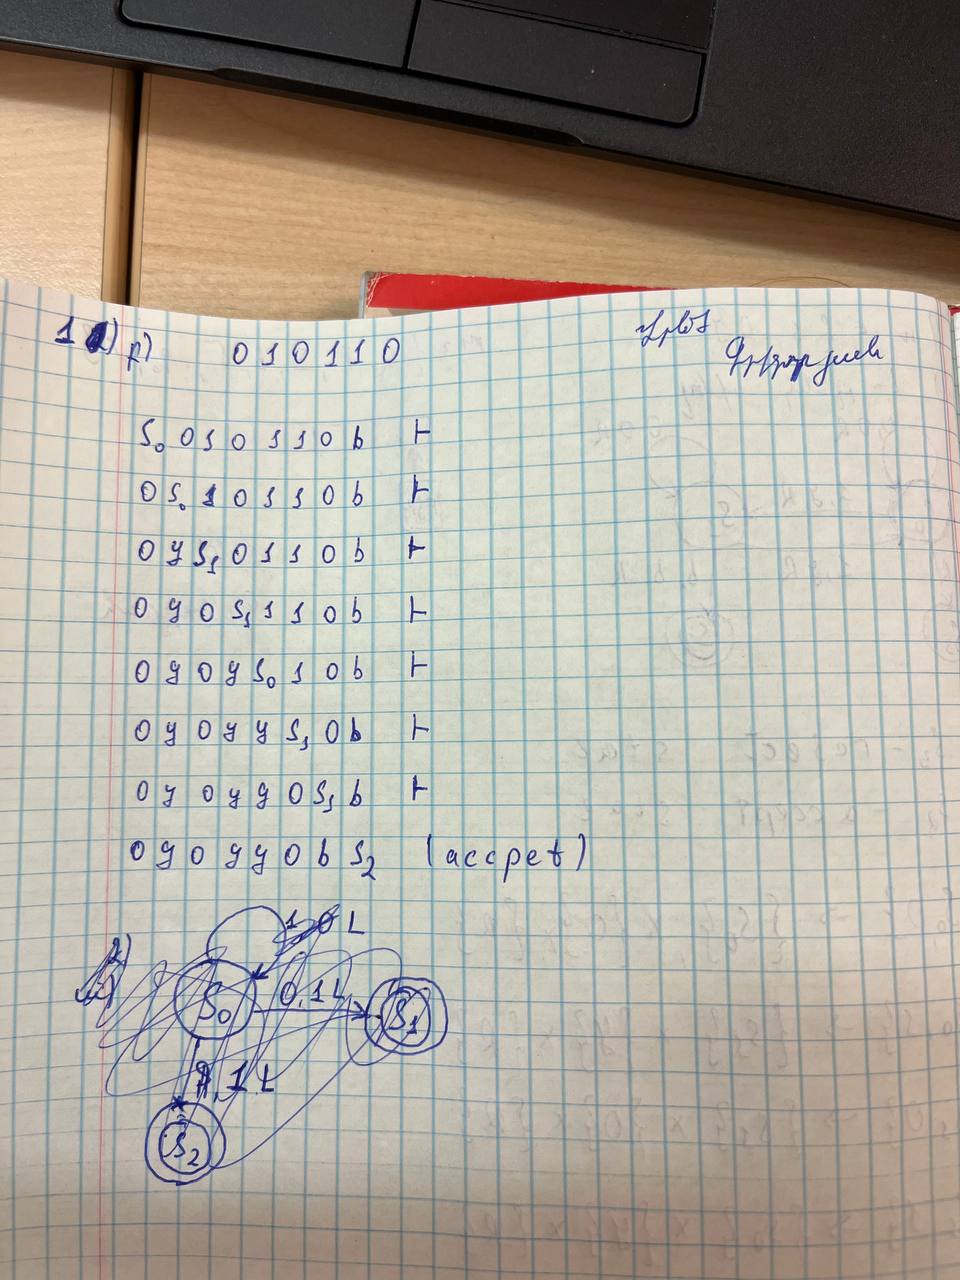 1 ა) բ) 010110
S₀ 0 1 0 1 1 0 b ⊢
0 S₀ 1 0 1 1 0 b ⊢
0 y S₁ 0 1 1 0 b ⊢
0 y 0 S₁ 1 1 0 b ⊢
0 y 0 y S₀ 1 0 b ⊢
0 y 0 y y S₁ 0 b ⊢
0 y 0 y y 0 S₁ b ⊢
0 y 0 y y 0 b S₂ (accpet)
1, 0 L
S₀ 0,1 L S₁
1 L
S₂